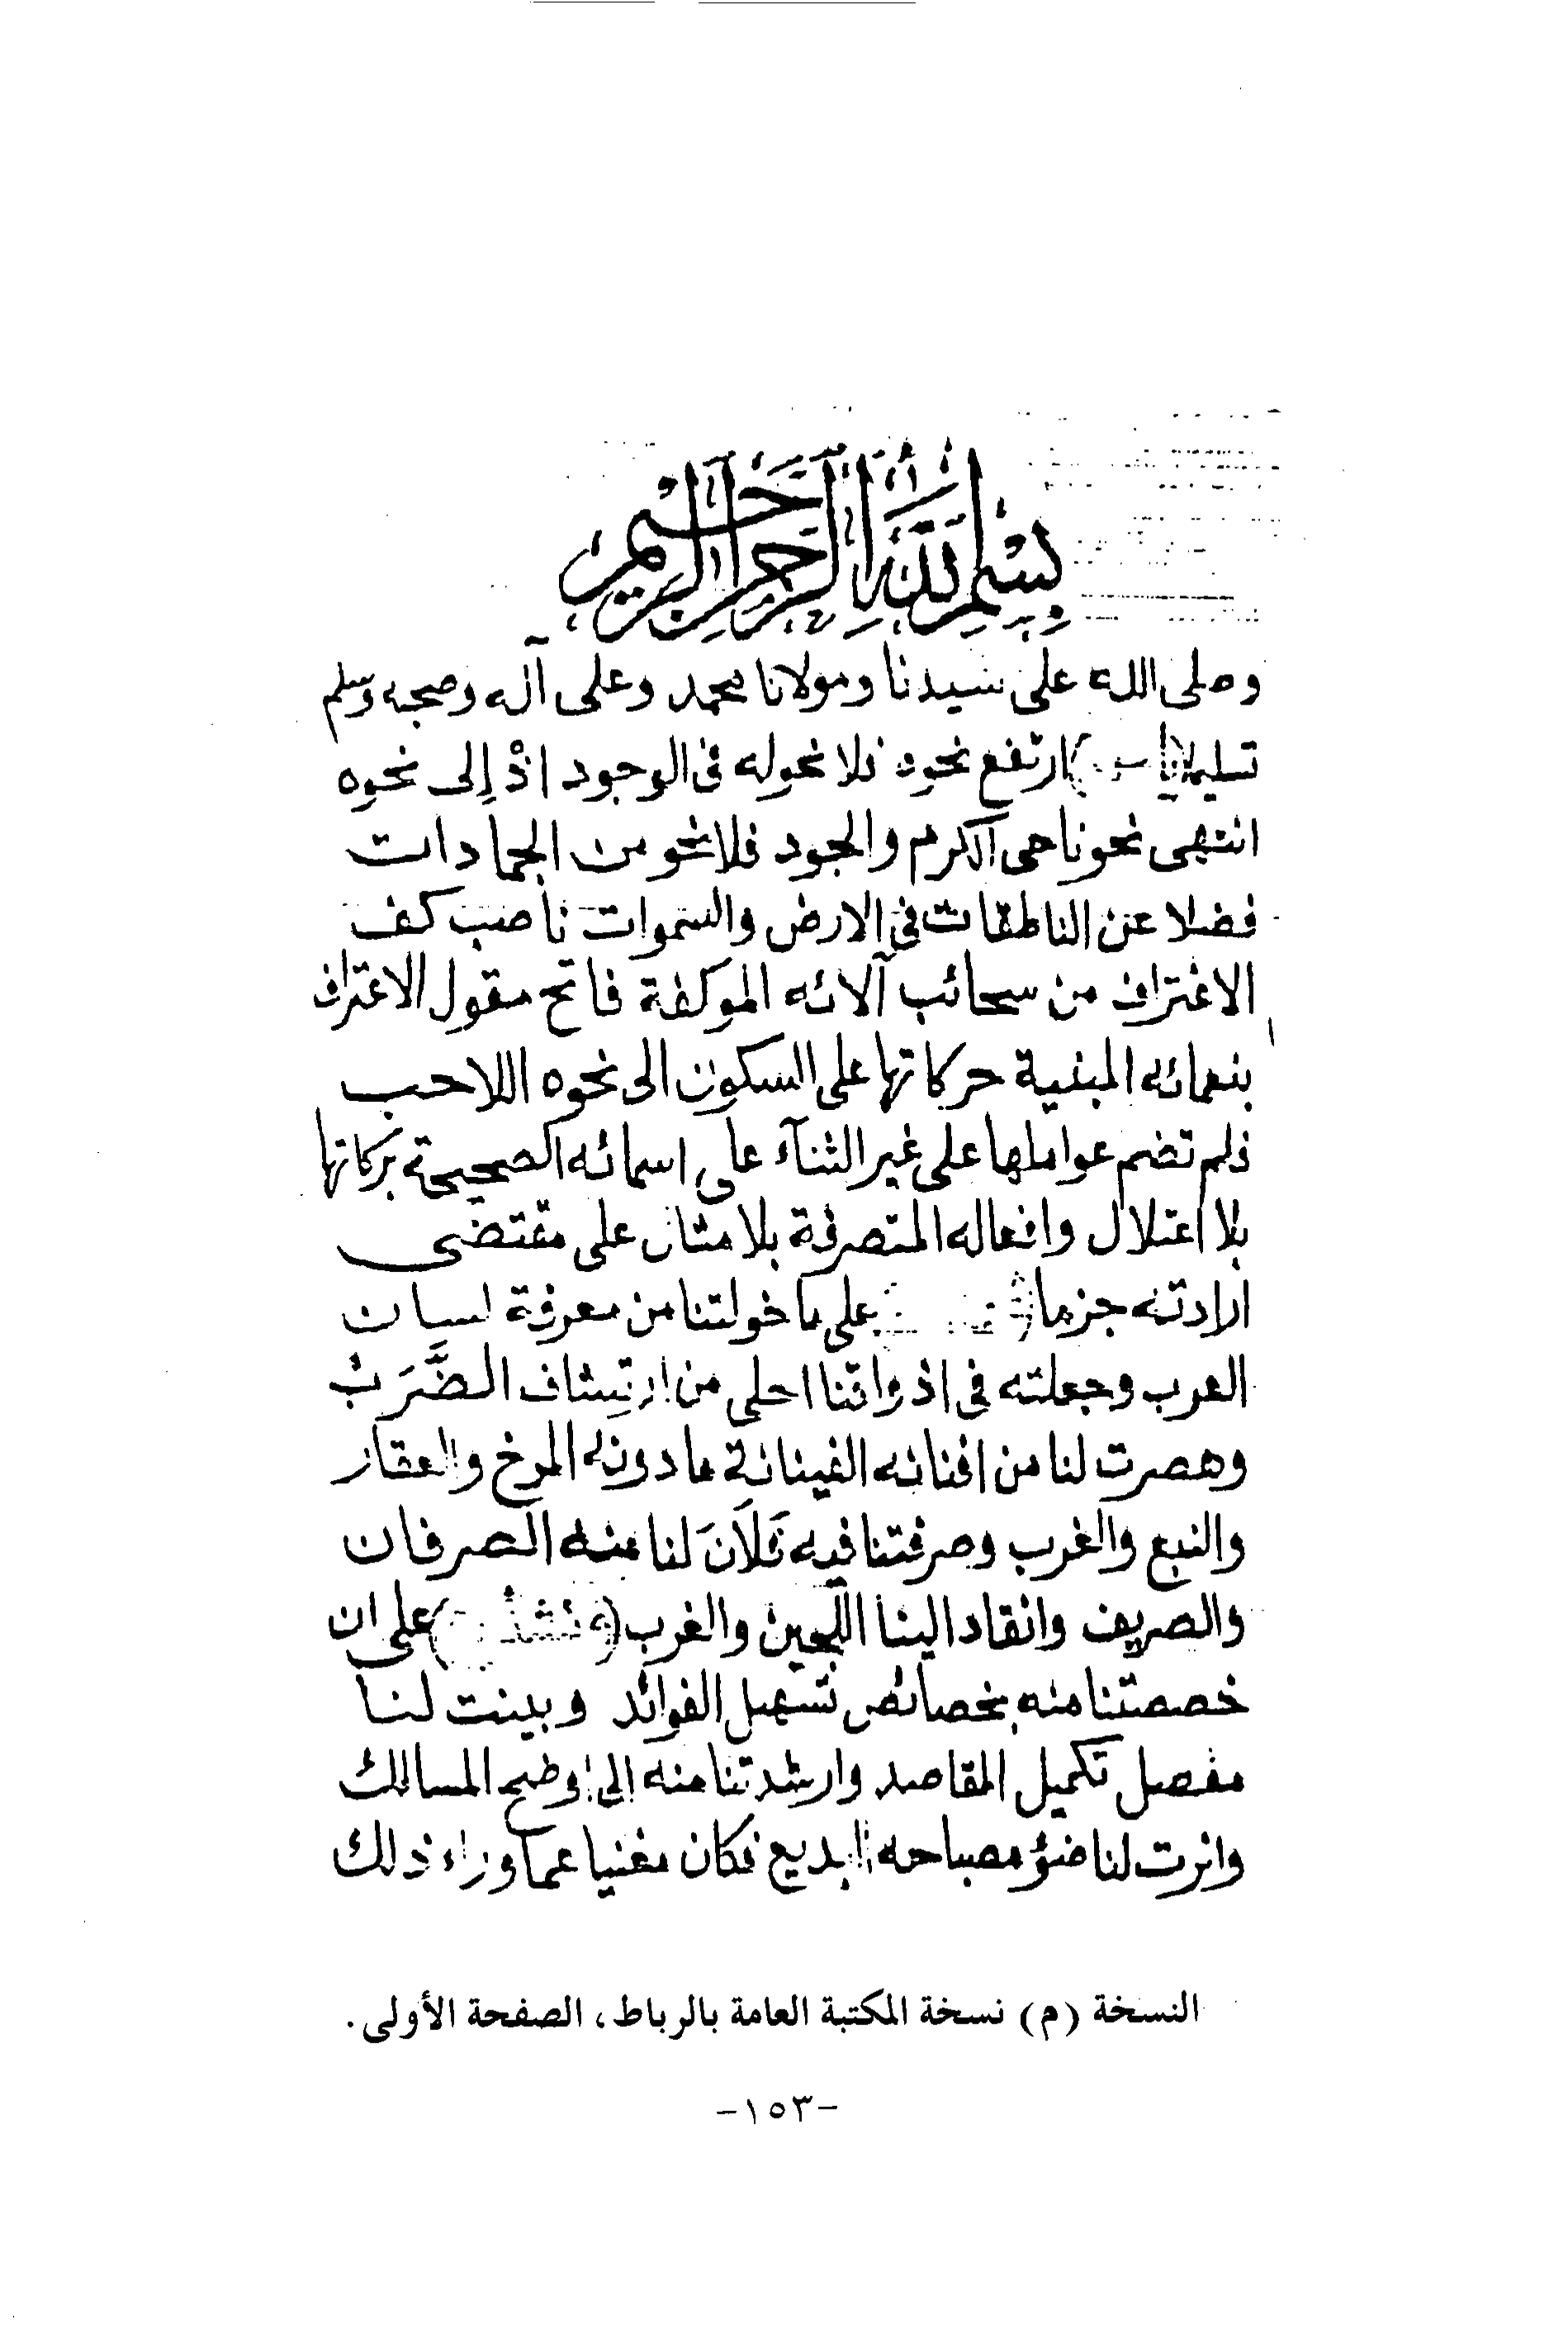 بِسْمِ اللَّهِ الرَّحْمَنِ الرَّحِيمِ
وصلى الله على سيدنا ومولانا محمد وعلى آله وصحبه وسلم
تسليما ارتفع نحوه فلا نحو له فى الوجود اذْ إِلى نحوه
انتهى نحونا حى الكرم والجود فلا نحو من الجمادات
فضلا عن الناطقات فى الارض والسموات ناصب كف
الاغتراف من سحائب آلائه الموكفة فاتح مقول الاعتراف
بنعمائه المبنية حركاتها على السكون الى نحوه اللاحب
فلم تضم عواملها على غير الثنآء على اسمائه الصحيحة بركاتها
بلا اعتلال وافعاله المتصرفة بلا مثال على مقتضى
ارادته جزما على ما خولتنا من معرفة لسان
العرب وجعلته فى اذواقنا احلى من ارتِشاف الضَّرَب
وهصرت لنا من افنانه الفينانة ما دونه المرخ والعقار
والنبع والغرب وصرفتنا فيه فَلَانَ لنا منه الصرفان
والصريف وانقاد الينا اللجين والغرب على ان
خصصتنا منه بخصائص تسهيل الفوائد وبينت لنا
مفصل تكميل المقاصد وارشدتنا منه إلى اوضح المسالك
وانرت لنا ضوؤ مصباحه البديع فكان مغنيا عما وراء ذلك
النسخة (م) نسخة المكتبة العامة بالرباط، الصفحة الأولى.
-١٥٣-